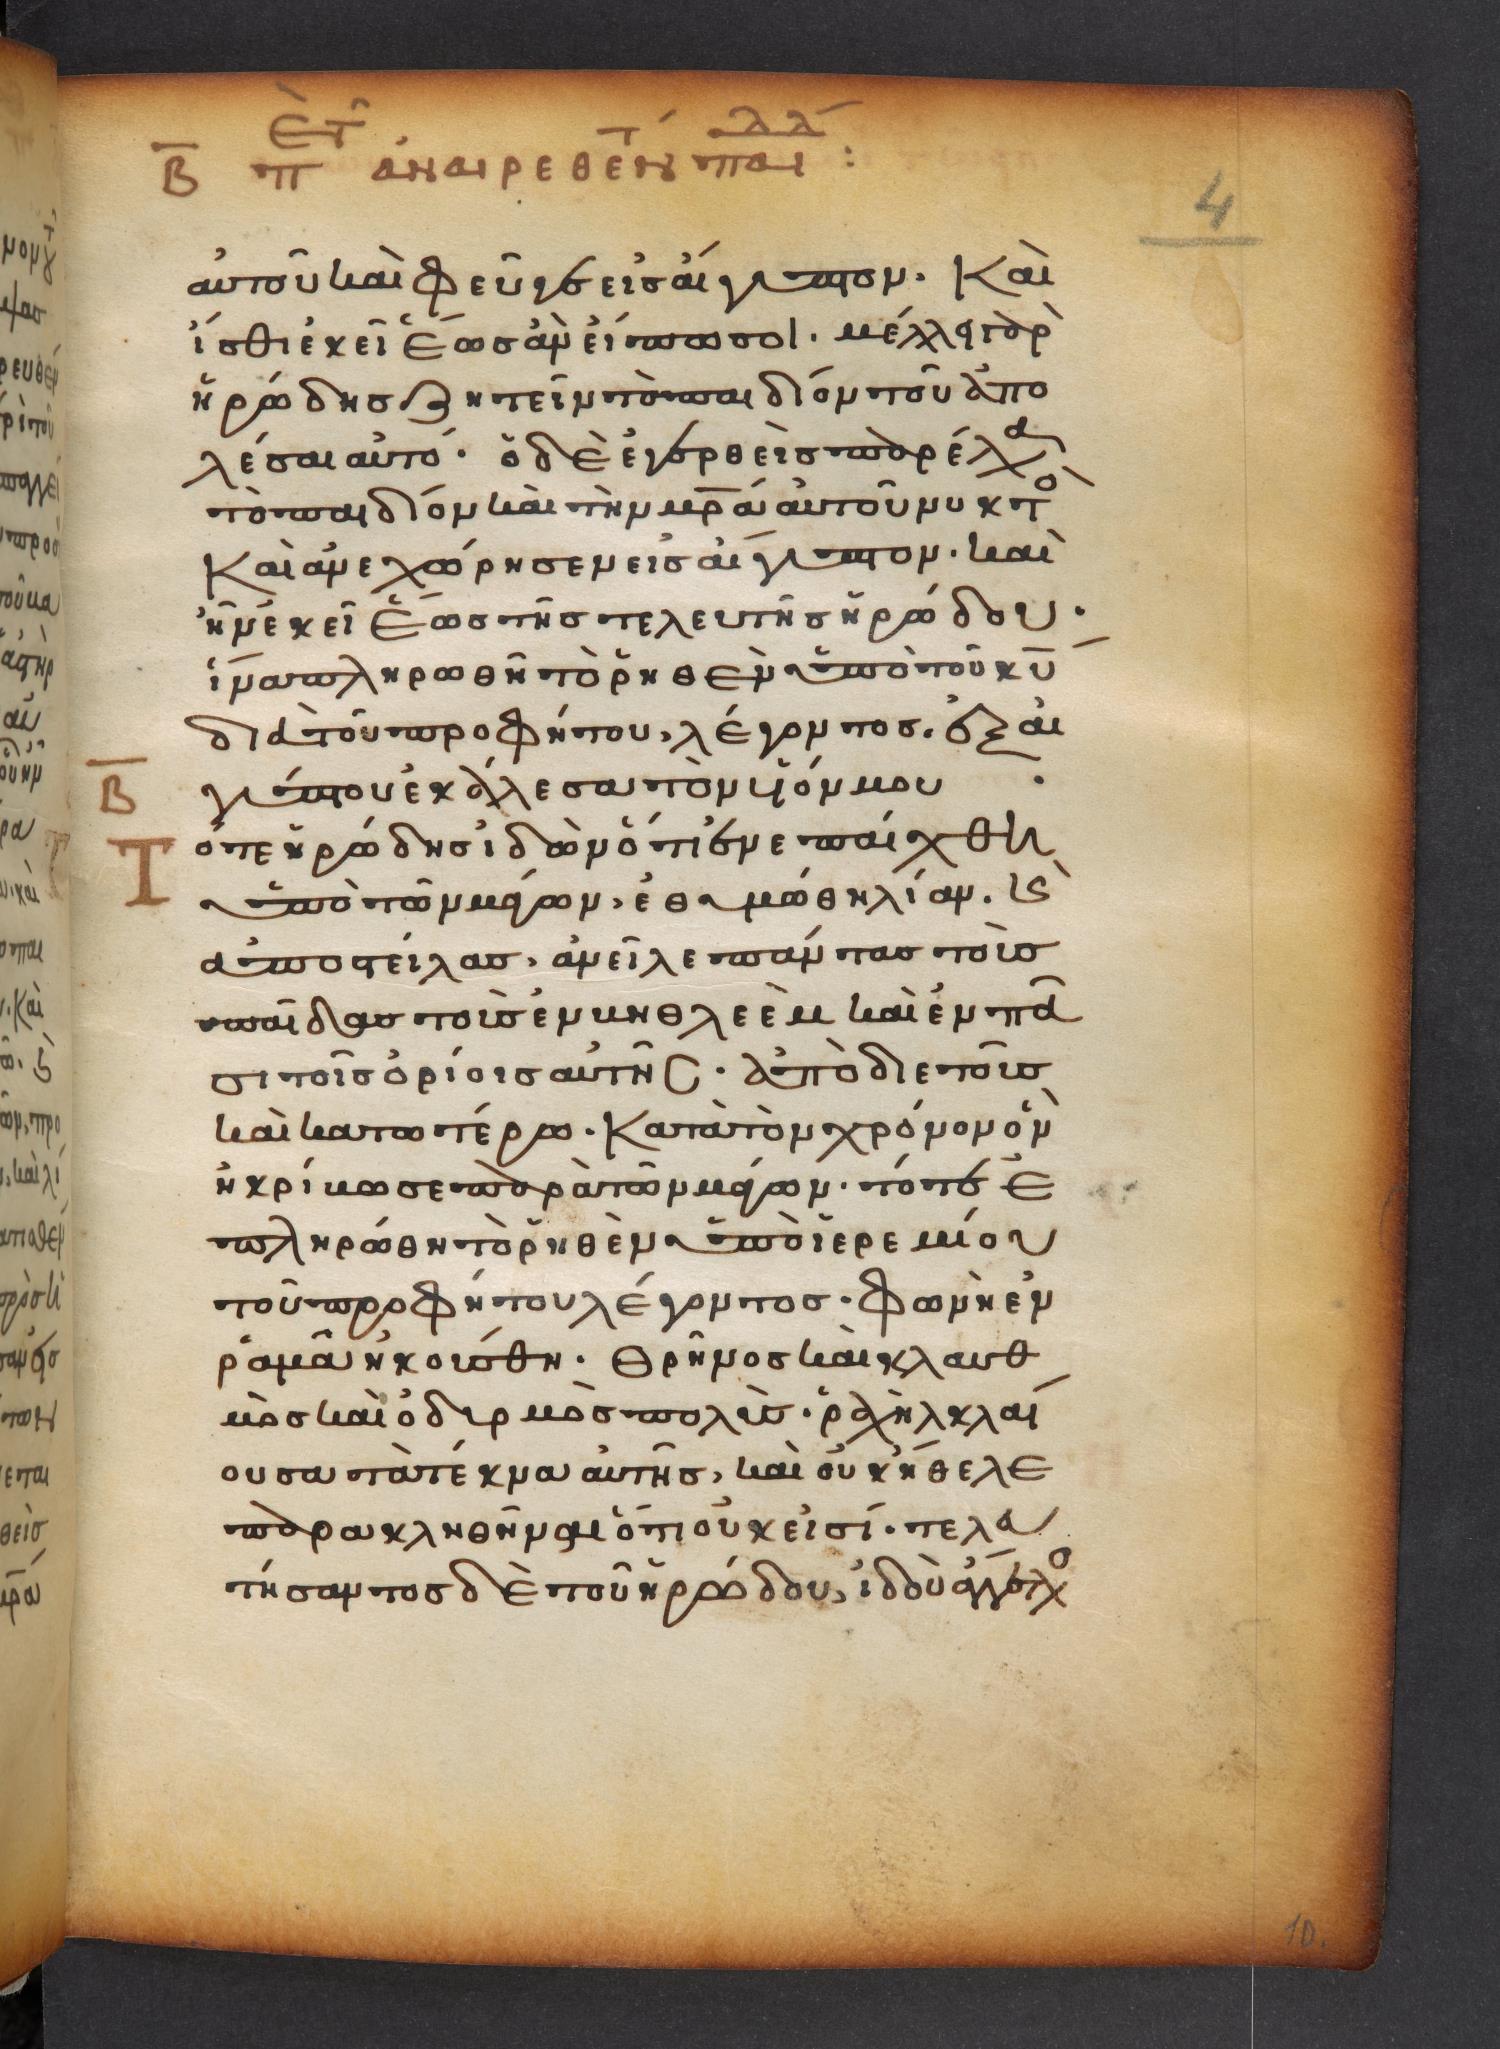 Β π ἀναιρεθέντ παι :
αὐτοῦ καὶ φεῦγε εἰς αἴγυπτον. Καὶ
ἴσθι ἐκεῖ ἕως ἂν εἴπω σοι. μέλλει γὰρ
ἡρώδης ζητεῖν τὸ παιδίον τοῦ ἀπο
λέσαι αὐτό. ὁ δὲ ἐγερθεὶς παρέλα
τὸ παιδίον καὶ τὴν μρα αὐτοῦ νυκτο
Καὶ ἀνεχώρησεν εἰς αἴγυπτον. καὶ
ἦν ἐκεῖ ἕως τῆς τελευτῆς ἡρώδου.
ἵνα πληρωθῆ τὸ ῥηθὲν ὑπὸ τοῦ κυ
διὰ τοῦ προφήτου, λέγοντος. ἐξ αἰ
Β
γύπτου ἐκάλεσα τὸν υἱόν μου .
Τότε ἡρώδης ἰδὼν ὅτι ἐνεπαίχθη
ὑπὸ τῶν μάγων, ἐθυμώθη λίαν. κὶ
ἀποστείλας, ἀνεῖλε πάντας τοὺς
παῖδας τοὺς ἐν βηθλεὲμ καὶ ἐν πᾶ
σι τοῖς ὁρίοις αὐτῆς. ἀπὸ διετοῦς
καὶ κατωτέρω. Κατὰ τὸν χρόνον ὃν
ἠκρίβωσε παρὰ τῶν μάγων. τότε ἐ
πληρώθη τὸ ῥηθὲν ὑπὸ ἱερεμίου
τοῦ προφήτου λέγοντος. φωνὴ ἐν
ῥαμᾶ ἠκούσθη. θρῆνος καὶ κλαυθ
μὸς καὶ ὀδυρμὸς πολὺς. ῥαχὴλ κλαί
ουσα τὰ τέκνα αὐτῆς, καὶ οὐκ ἤθελε
παρακληθῆναι ὅτι οὐκ εἰσί. τελευ
τήσαντος δὲ τοῦ ἡρώδου, ἰδοὺ ἄγγελο
4
10.